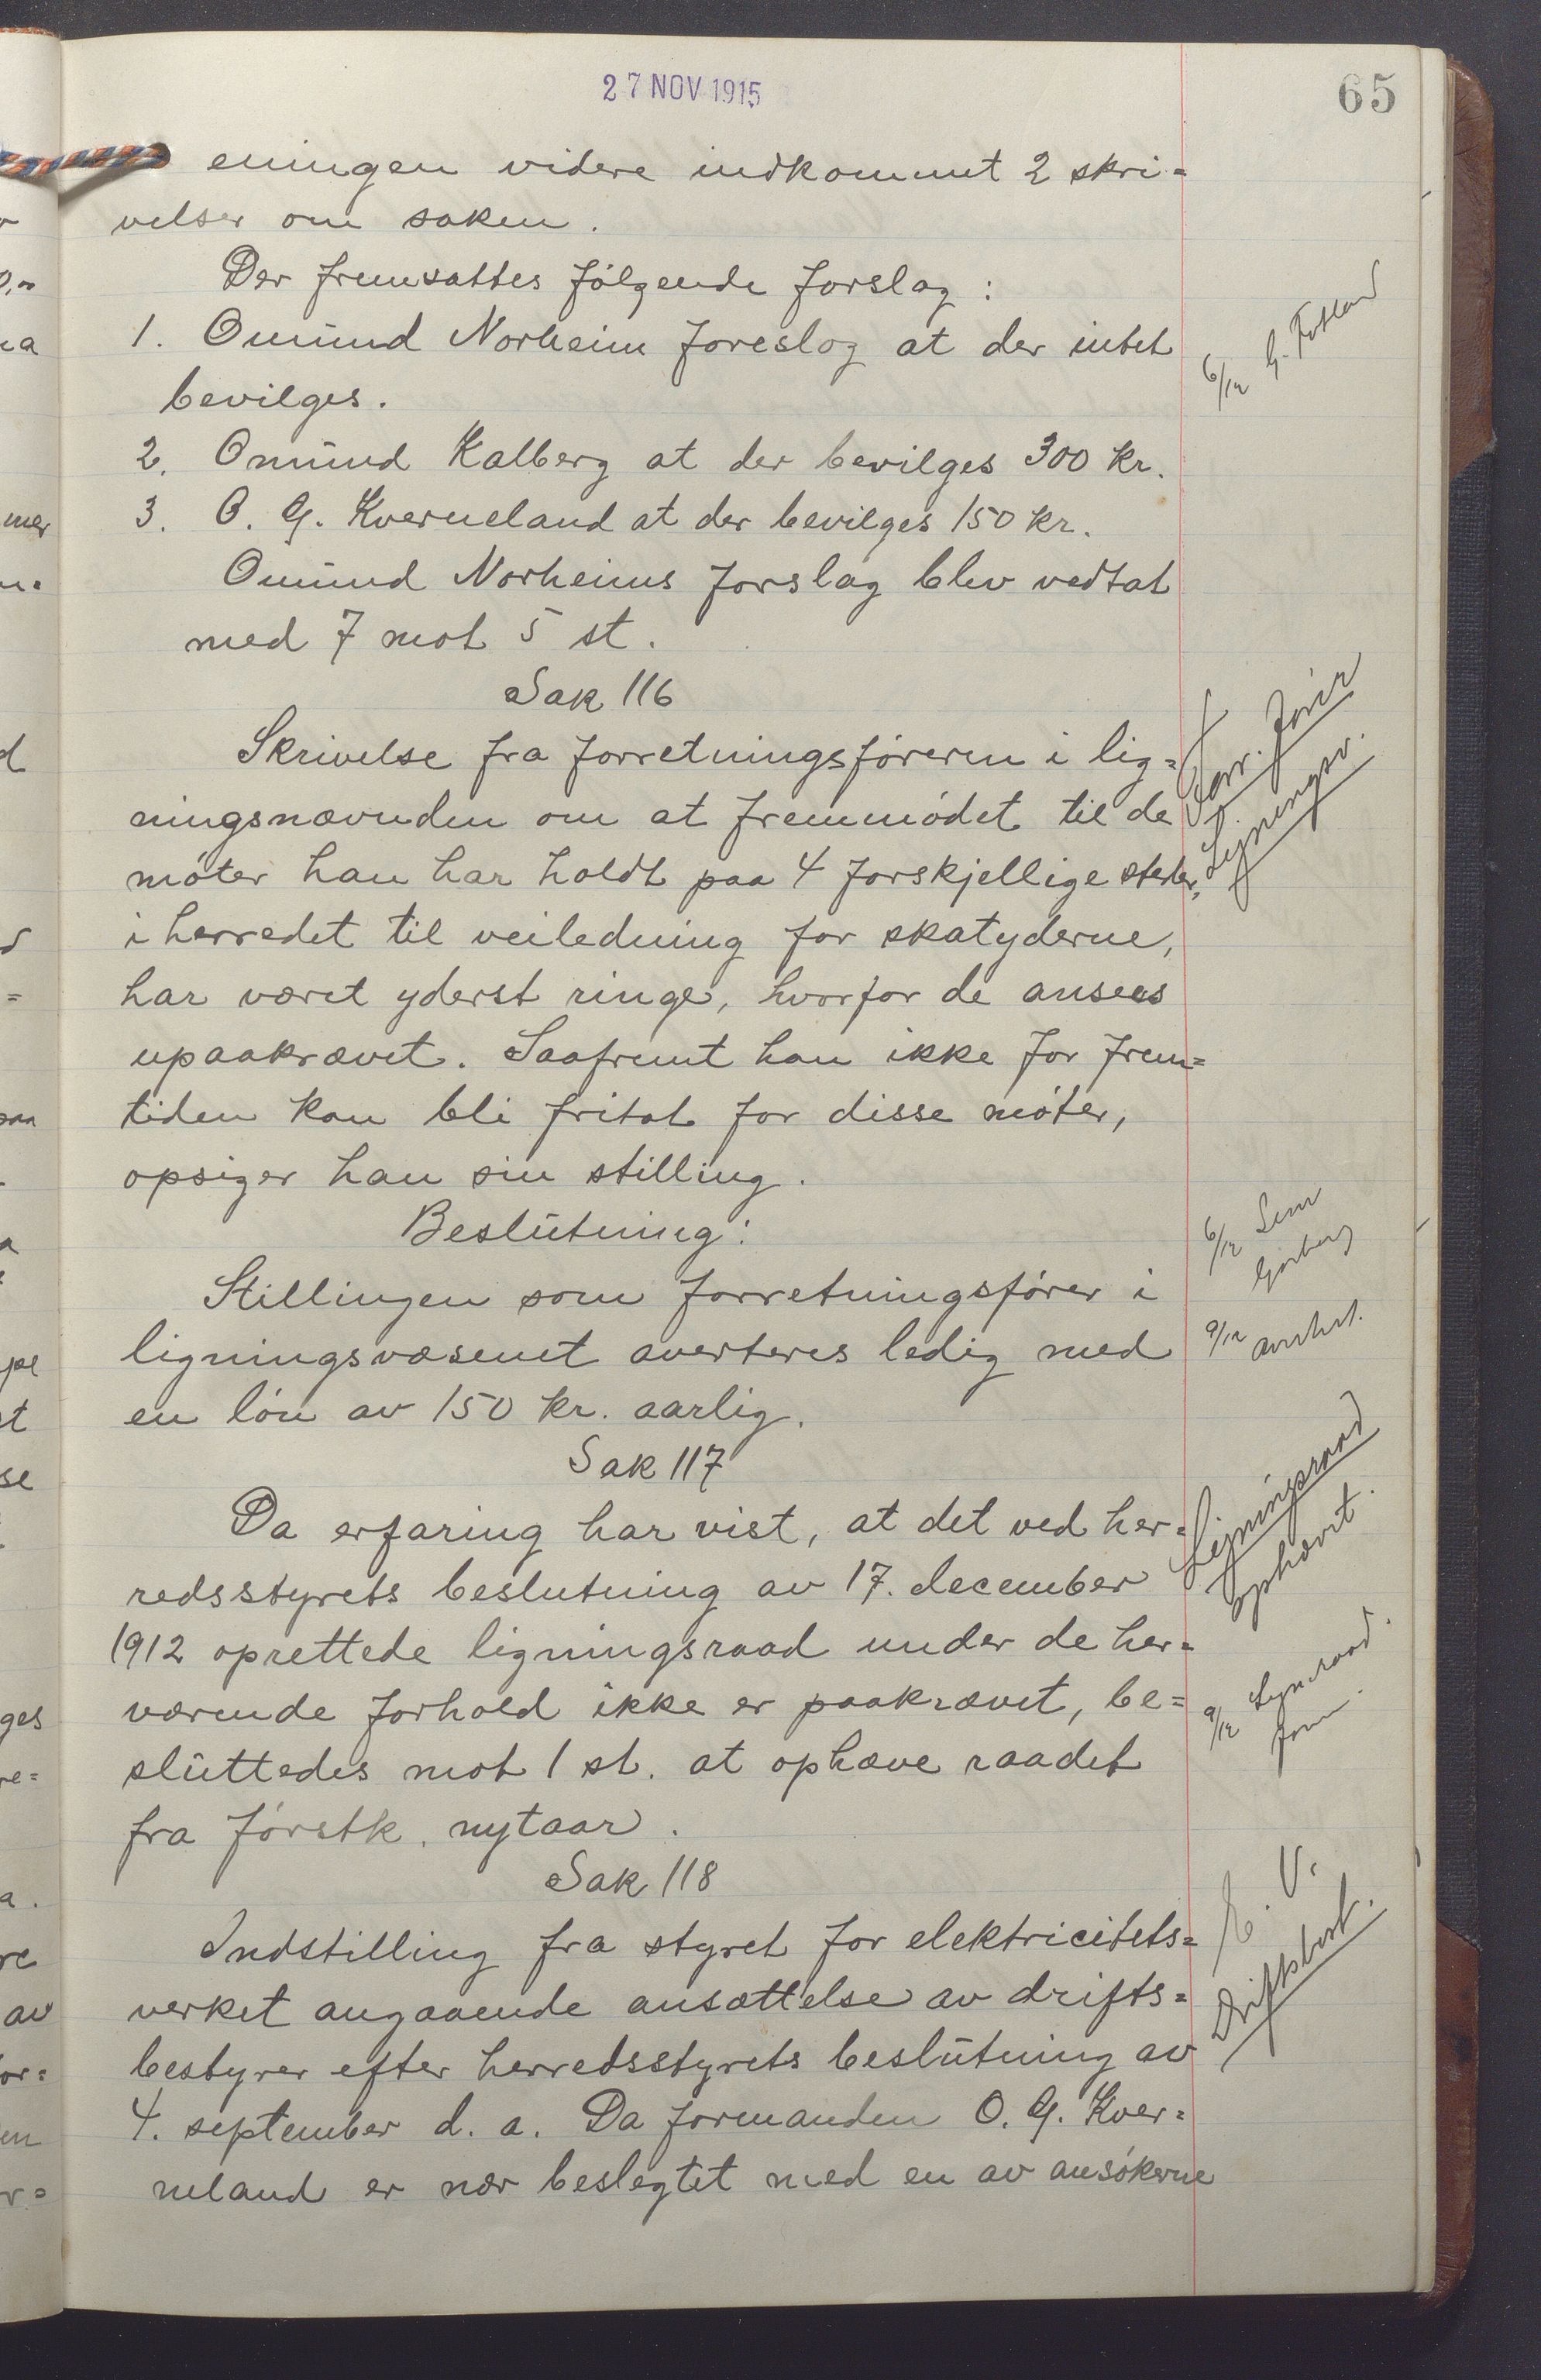 27 NOV 1915
65
eningen videre indkommet 2 skri=
velser om saken.
Der fremsattes følgende forslag:
1. Omund Norheim foreslog at der intet
bevilges.
6/12 G. Fotland
2. Omund Kalberg at der bevilges 300 kr.
3. O. G. Kverneland at der bevilges 150 kr.
Omund Norheims forslag blev vedtat
med 7 mot 5 st.
Sak 116
Forr. førir
Ligningsv.
Skrivelse fra forretningsføreren i lig=
ningsnævnden om at fremmødet til de
møter han har holdt paa 4 forskjellige steder,
i herredet til veiledning for skatyderne,
har været yderst ringe, hvorfor de ansees
upaakrævet. Saafremt han ikke for frem=
tiden kan bli fritat for disse møter,
opsiger han sin stilling.
Beslutning:
6/12
Stillingen som forretningsfører i
ligningsvæsenet averteres ledig med
9/12 avert.
en løn av 150 kr. aarlig.
Sak 117
Ligningsraad
ophævet.
Da erfaring har vist, at det ved her=
redsstyrets beslutning av 17. december
1912 oprettede ligningsraad under de her=
værende forhold ikke er paakrævet, be=
9/12 Lign.raad.
sluttedes mot 1 st. at ophæve raadet
fra førstk. nytaar.
Sak 118
E. V.
Driftsbest.
Indstilling fra styret for elektricitets=
verket angaaende ansættelse av drifts=
bestyrer efter herredsstyrets beslutning av
4. september d. a. Da formanden O. G. Kver=
neland er nær beslegtet med en av ansøkerne